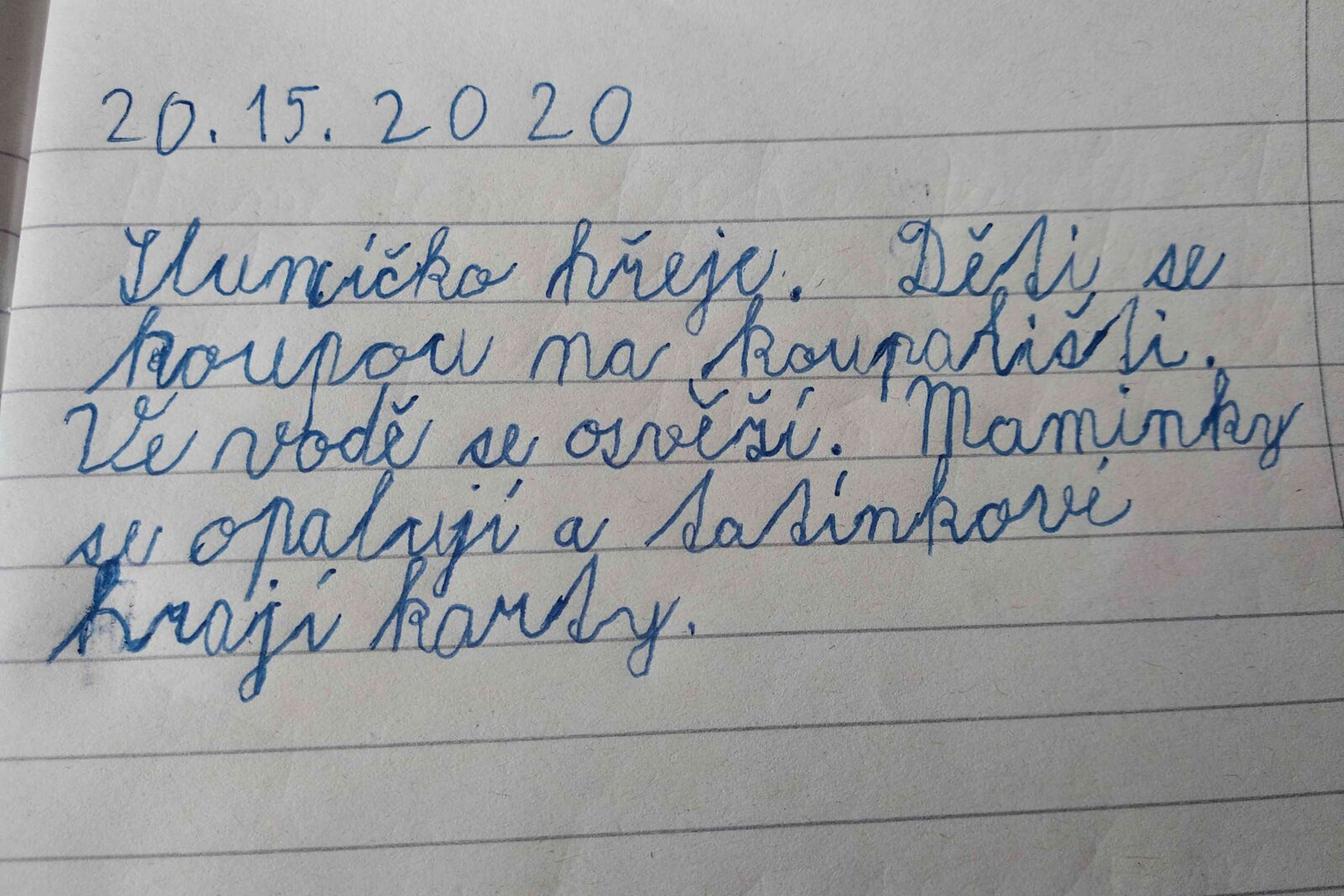 20.15.2020
Sluníčko hřeje. Děti se
koupou na koupališti.
Ve vodě se osvěží. Maminky
se opalují a tatínkové
hrají karty.